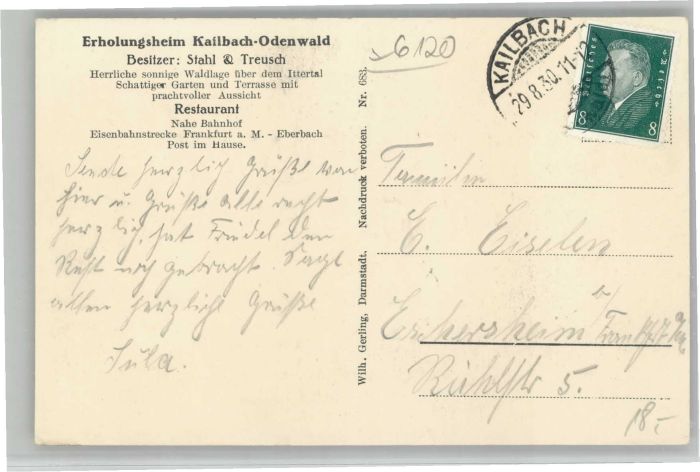 Erholungsheim Kailbach-Odenwald
Besitzer: Stahl & Treusch
Herrliche sonnige Waldlage über dem Ittertal
Schattiger Garten und Terrasse mit
prachtvoller Aussicht
Restaurant
Nahe Bahnhof
Eisenbahnstrecke Frankfurt a. M. - Eberbach
Post im Hause.
Sende herzlich Grüße von
hier u. Grüße alle recht
herzlich, hat Friedel den
Rest noch gebracht. Sage
allen herzliche Grüße
Jula.
Wilh. Gerling, Darmstadt. Nachdruck verboten. Nr. 683.
6120
KAILBACH
29.8.30.11-12
8 8
Familien
E. Eiselen
Eschersheim a/ Frankfurt a/M
Rühlstr 5.
18-